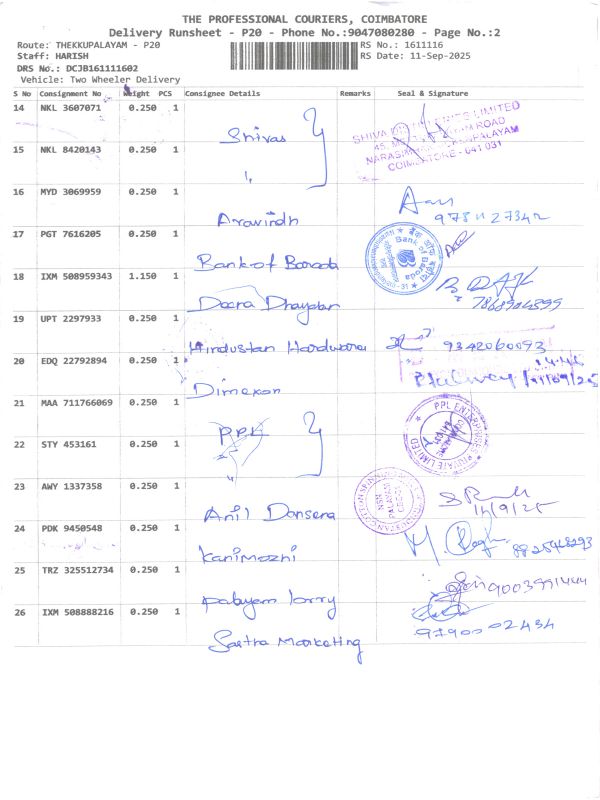 THE PROFESSIONAL COURIERS, COIMBATORE
Delivery Runsheet - P20 - Phone No.:9047080280 - Page No.:2
Route: THEKKUPALAYAM - P20 RS No.: 1611116
Staff: HARISH RS Date: 11-Sep-2025
DRS No.: DCJB161111602
Vehicle: Two Wheeler Delivery
S No Consignment No Weight PCS Consignee Details Remarks Seal & Signature
14 NKL 3607071 0.250 1
Shivas
15 NKL 8420143 0.250 1
LIMITED
ROAD
COIMBATORE - 641 031
16 MYD 3069959 0.250 1
Aravindh
17 PGT 7616205 0.250 1
Bank of Baroda
Bank of Baroda
18 IXM 508959343 1.150 1
7868904399
19 UPT 2297933 0.250 1
Hindustan Hardware 9342060093
20 EDQ 22792894 0.250 1
Dimexon
21 MAA 711766069 0.250 1
PPL
PPL ENTERPRISES PRIVATE LIMITED
22 STY 453161 0.250 1
23 AWY 1337358 0.250 1
Anil
24 PDK 9450548 0.250 1
Kanimozhi
25 TRZ 325512734 0.250 1
lorry 9003991444
26 IXM 508888216 0.250 1
Sastra Marketing 9790002434